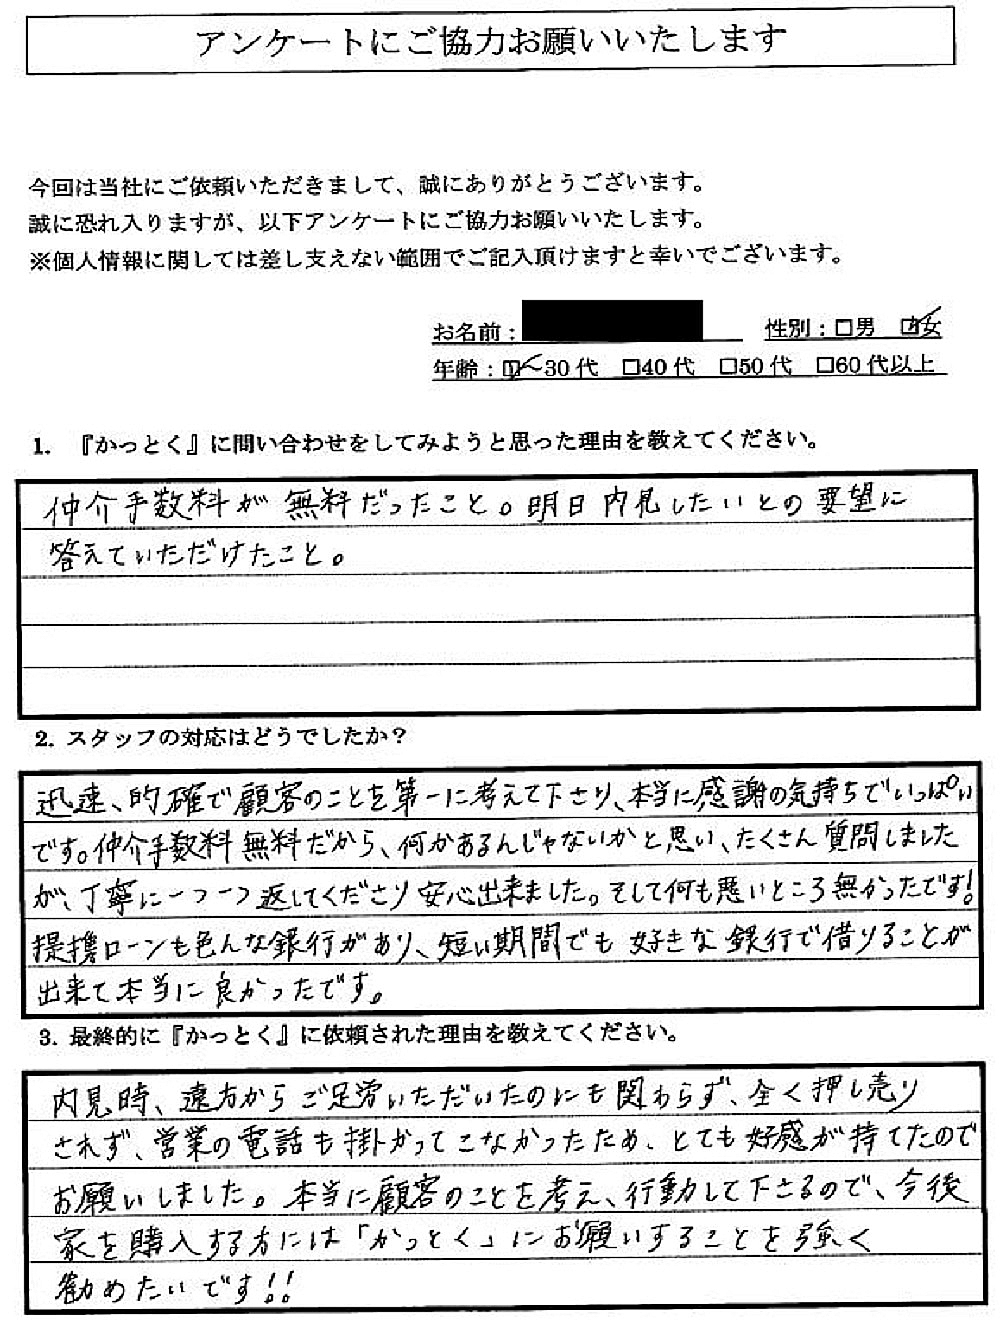 アンケートにご協力お願いいたします
今回は当社にご依頼いただきまして、誠にありがとうございます。
誠に恐れ入りますが、以下アンケートにご協力お願いいたします。
※個人情報に関しては差し支えない範囲でご記入頂けますと幸いでございます。
お名前： 性別：□男 ☑女
年齢：☑～30代 □40代 □50代 □60代以上
1. 『かっとく』に問い合わせをしてみようと思った理由を教えてください。
仲介手数料が無料だったこと。明日内見したいとの要望に
答えていただけたこと。
2. スタッフの対応はどうでしたか？
迅速、的確で顧客のことを第一に考えて下さり、本当に感謝の気持ちでいっぱい
です。仲介手数料無料だから、何かあるんじゃないかと思い、たくさん質問しました
が、丁寧に一つ一つ返してくださり安心出来ました。そして何も悪いところ無かったです!
提携ローンも色んな銀行があり、短い期間でも好きな銀行で借りることが
出来て本当に良かったです。
3. 最終的に『かっとく』に依頼された理由を教えてください。
内見時、遠方からご足労いただいたのにも関わらず、全く押し売り
されず、営業の電話も掛かってこなかったため、とても好感が持てたので
お願いしました。本当に顧客のことを考え、行動して下さるので、今後
家を購入する方には「かっとく」にお願いすることを強く
勧めたいです!!